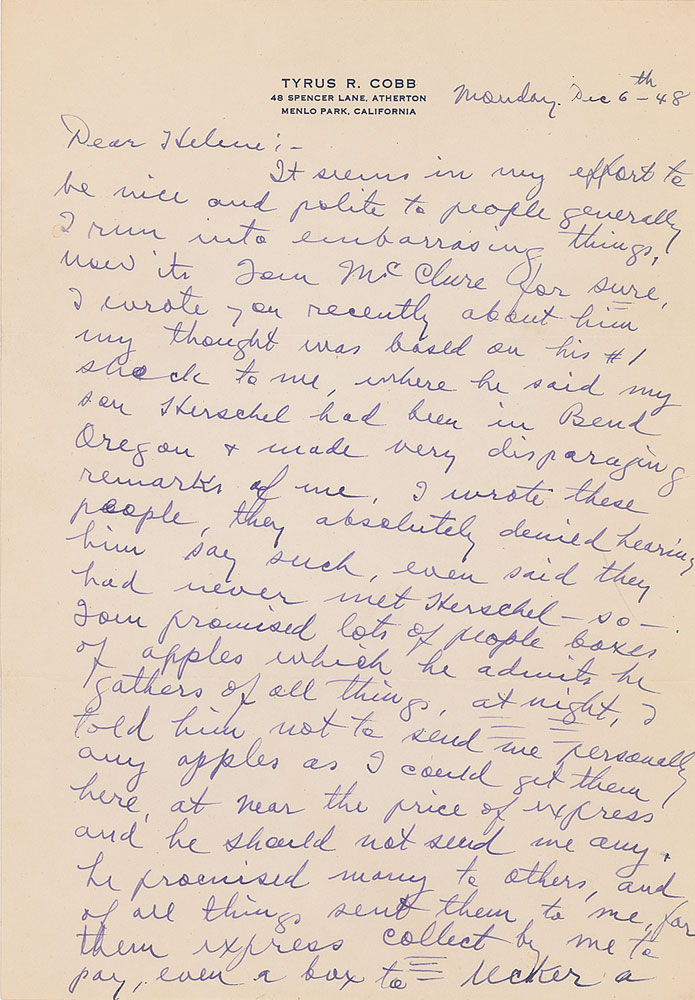 TYRUS R. COBB
48 SPENCER LANE, ATHERTON
MENLO PARK, CALIFORNIA
Monday. Dec 6th - 48
Dear Helene: -
It seems in my effort to
be nice and polite to people generally
I run into embarrasing things,
now its Tom McClure for sure,
I wrote you recently about him
my thought was based on his #1
shock to me, where he said my
son Herschel had been in Bend
Oregon & made very disparaging
remarks of me, I wrote these
people, they absolutely denied hearing
him say such, even said they
had never met Herschel - so -
Tom promised lots of people boxes
of apples which he admits he
gathers of all things, at night, I
told him not to send me personally
any apples as I could get them
here, at near the price of express
and he should not send me any.
he promised many to others, and
of all things sent them to me, for
them express collect by me to
pay, even a box to Ucker a